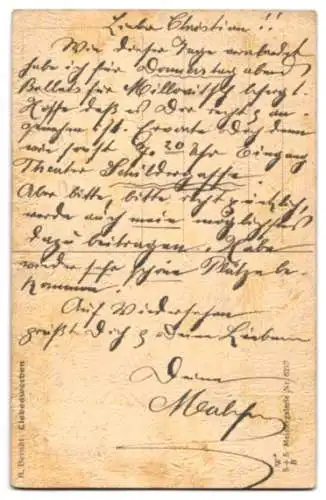 Lieber Christian!!
Wie dieser Tage verabredet
habe ich für Donnerstag abend
Billets für Millowitsch besorgt.
Hoffe daß es Dir recht & an-
genehm ist. Erwarte Dich dann
wie sonst 7.20 Uhr Eingang
Theater Schildergasse.
Aber bitte, bitte recht pünktlich,
werde auch mein möglichstes
dazu beitragen. Habe
wieder sehr schöne Plätze be-
kommen!
Auf Wiedersehen
grüßt Dich & Deine Lieben
Deine
Liebeswerben
S & S Meistergalerie Nr.
W
B